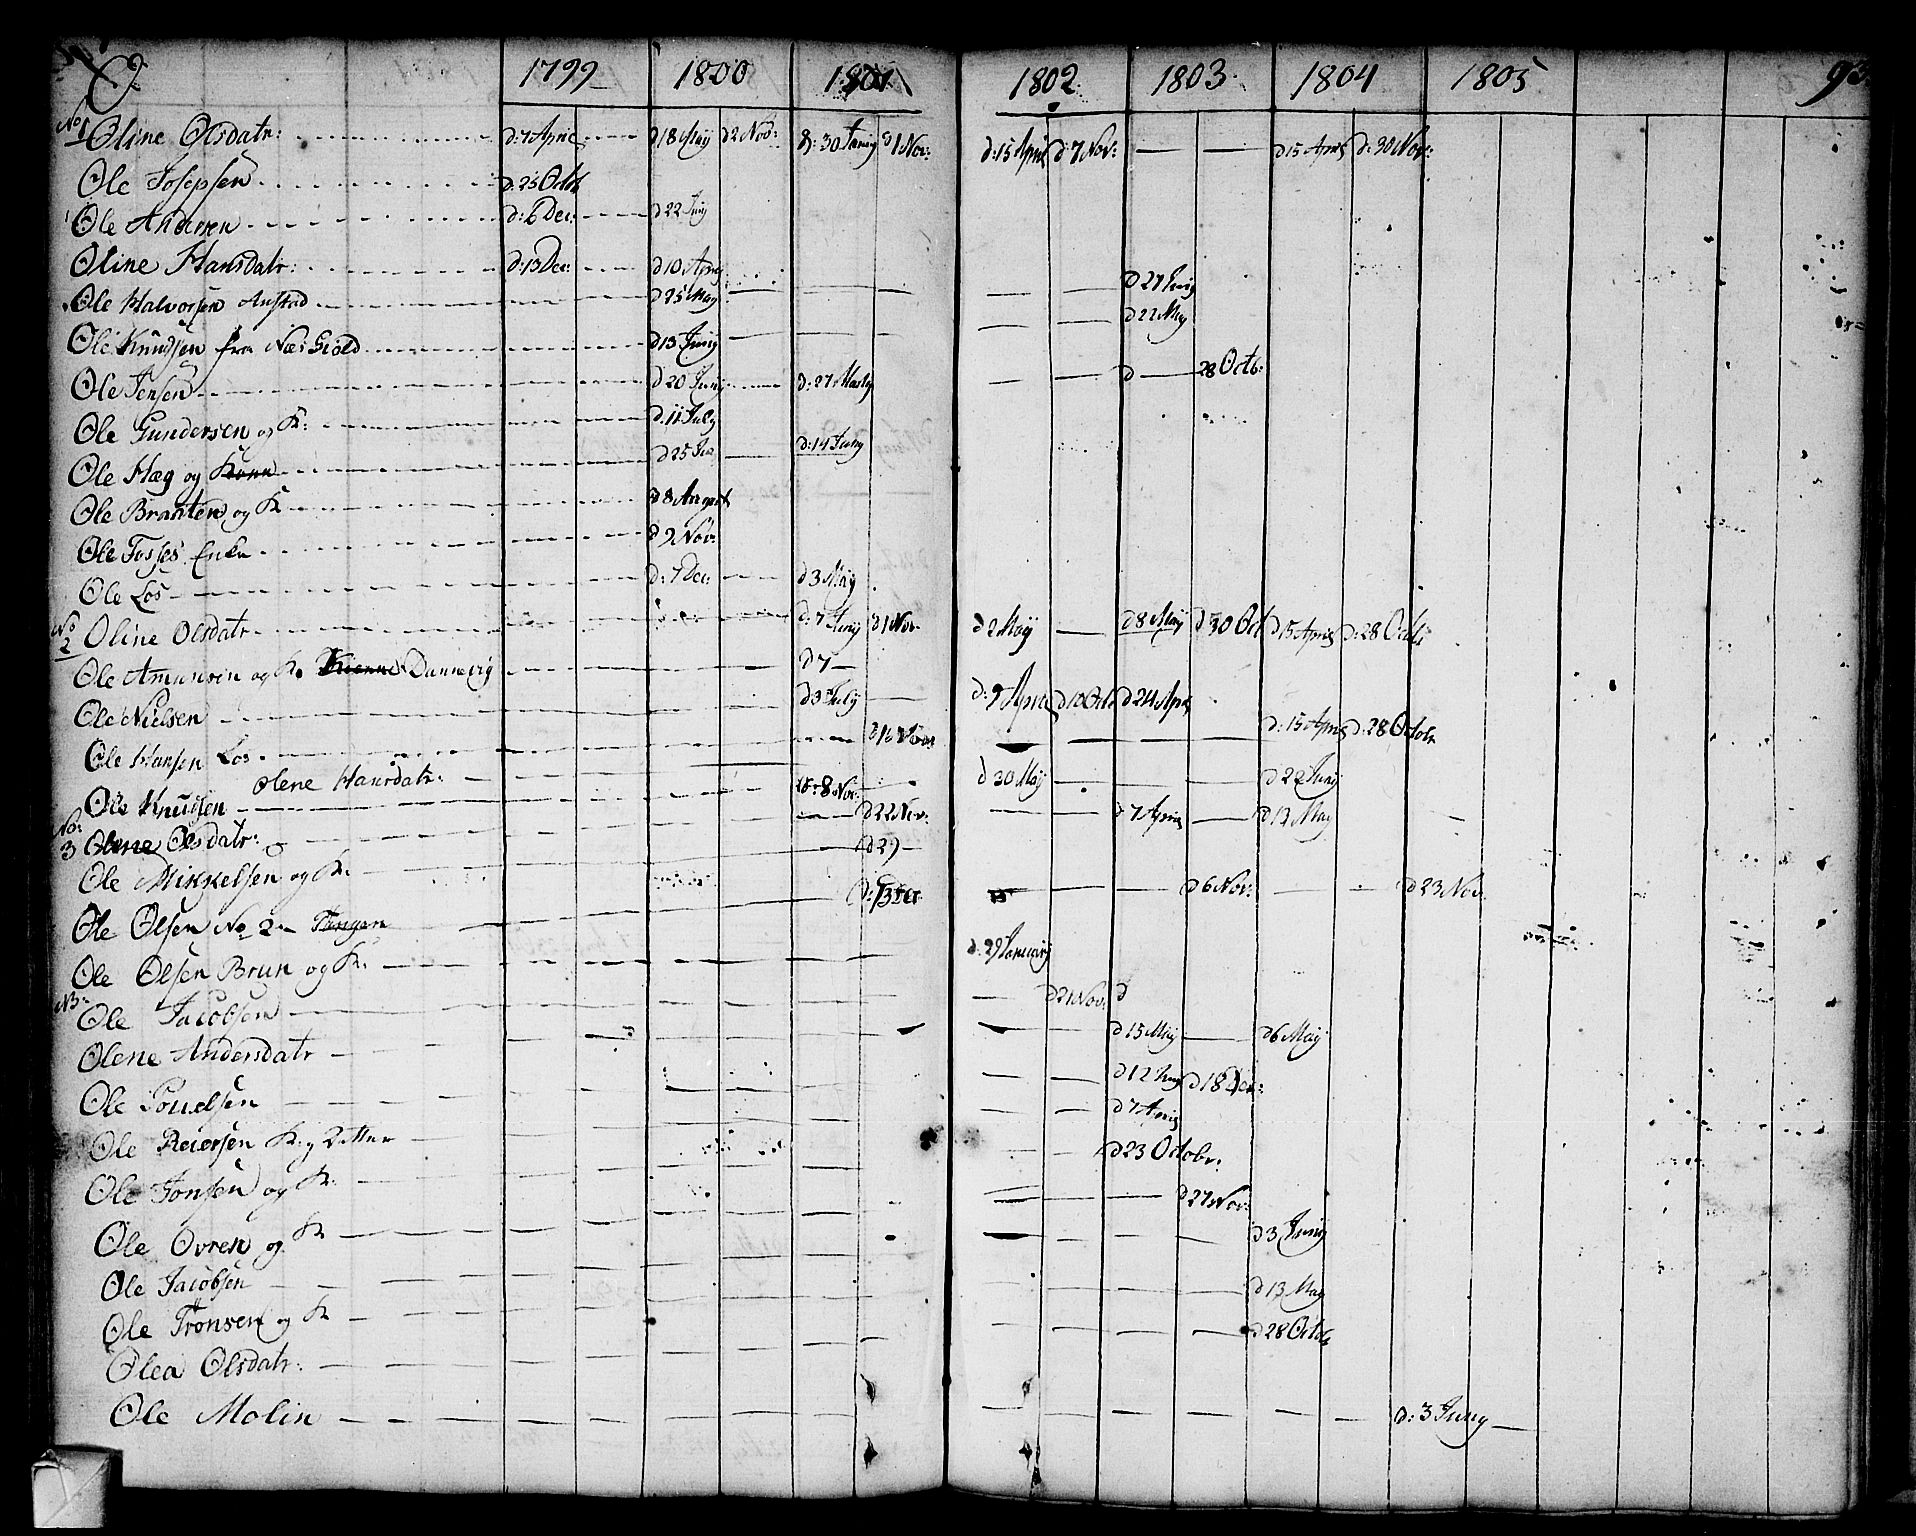 O. 1799 1800 1801 1802 1803 1804 1805 93
No 1 Oline Olsdatr: d: 7 April d 18 Maij d 2 Nov: d: 30 Janij d 1 Nov: d: 15 April d 7 Nov: d 15 April d: 30 Nov:
Ole Josepsen d: 25 Octob
Ole Andersen d: 6 Dec: d 22 Junij
Oline Hansdatr: d: 13 Dec: d 10 April d 27 Junij
Ole Halvorsen Anstad d 25 Maij d 22 Maij
Ole Knudsen fra Næs Giæld d 13 Junij d 28 Octb:
Ole Jensen d 20 Junij d: 27 Martij
Ole Gundersen og K: d. 11 July
Ole Hæg og Kone d 25 d: 14 Junij
Ole Braaten og K d 8 August
Ole Tosses Enke d 9 Nov:
Ole Los d: 7 Dec: d 3 Maij
No 2 Oline Olsdatr d: 7 Junij d 1 Nov: d 2 Maij d 8 Maij d 30 Oct d 15 April d: 28 Octb
Ole Amunsen og K. Dannevig d 7
Ole Nielsen d 3 July d: 9 April d 10 Octb d 24 April
Ole Hansen Los d 16 Nov: d: 15 April d: 28 Octobr
Olene Hansdatr: d 30 Maij d 22 Junij
Ole Knudsen 8 Nov:
No: 3 Olene Olsdatr: d 22 Nov: d 7 April d 13 Maij
Ole Mikkelsen og K. d 29
Ole Olsen No 2 Tangen d: 13 Dec d 6 Nov: d 23 Nov:
Ole Olsen Brun og K: d. 29 Januarij
No: Ole Jacobsen d 21 Nov: d
Olene Andersdatr d 15 Maij d 6 Maij
Ole Pouelsen d 12 Junij d 18 Dec:
Ole Reiersen K: og 2 d 7 April
Ole Jonsen og K: d 23 Octobr:
Ole Ovren og K d 27 Nov:
Ole Jacobsen d 3 Junij
Ole Tronsen og K d 13 Maij
Olea Olsdatr: d 28 Octob
Ole Molin d: 3 Junij